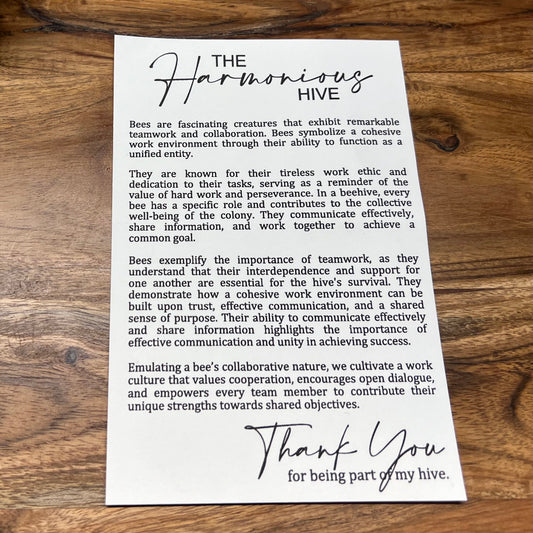 THE
Harmonious
HIVE
Bees are fascinating creatures that exhibit remarkable
teamwork and collaboration. Bees symbolize a cohesive
work environment through their ability to function as a
unified entity.
They are known for their tireless work ethic and
dedication to their tasks, serving as a reminder of the
value of hard work and perseverance. In a beehive, every
bee has a specific role and contributes to the collective
well-being of the colony. They communicate effectively,
share information, and work together to achieve a
common goal.
Bees exemplify the importance of teamwork, as they
understand that their interdependence and support for
one another are essential for the hive's survival. They
demonstrate how a cohesive work environment can be
built upon trust, effective communication, and a shared
sense of purpose. Their ability to communicate effectively
and share information highlights the importance of
effective communication and unity in achieving success.
Emulating a bee's collaborative nature, we cultivate a work
culture that values cooperation, encourages open dialogue,
and empowers every team member to contribute their
unique strengths towards shared objectives.
Thank You
for being part of my hive.